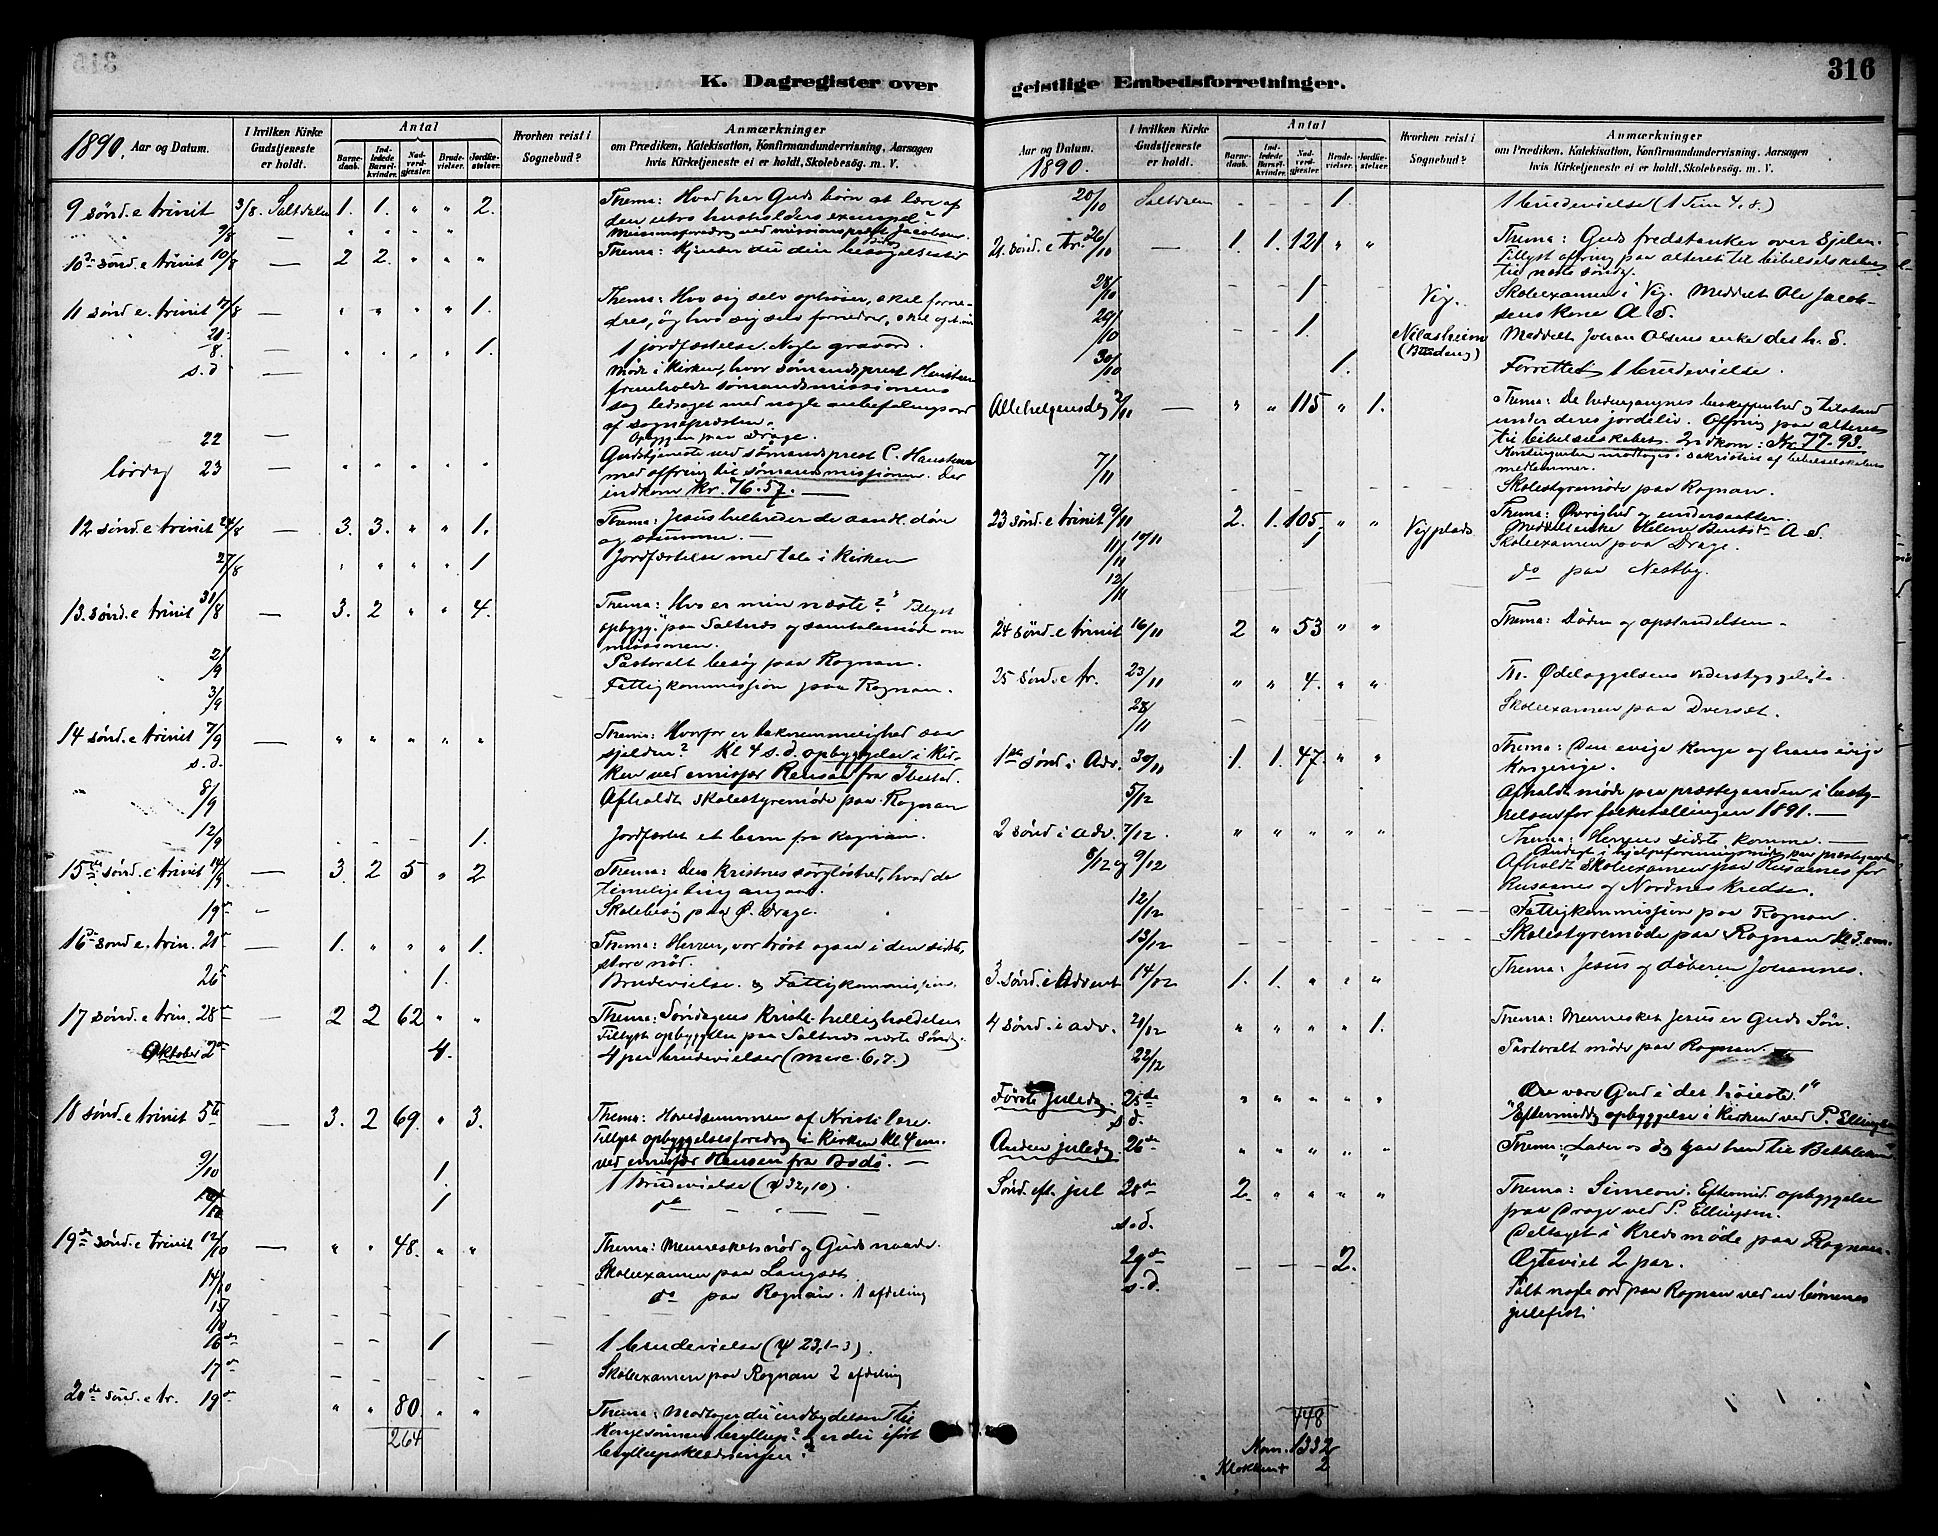 316
K. Dagregister over geistlige Embedsforretninger.
1890. Aar og Datum.
I hvilken Kirke Gudstjeneste er holdt.
Antal
Barnedaab.
Indledede Barselkvinder.
Nadverdgjæster.
Brudevielser.
Jordfæstelser.
Hvorhen reist i Sognebud?
Anmærkninger
om Prædiken, Katekisation, Konfirmandundervisning, Aarsagen
hvis Kirketjeneste ei er holdt, Skolebesög. m. V.
9 sønd. e trinit 3/8. Saltdalen 1. 1. " " 2. Thema: Hvad har Guds børn at lære af
den utro husholders exempel?
9/8 — " " " " Missionsforedrag ved missionsprest Jacobsen.
10de sønd. e trinit 10/8 — 2 2. " " " Thema: Kjender du din besøgelsestid
11 sønd. e. trinit 17/8 — " " " " 1. Thema: Hvo sig selv ophøier, skal forne-
dres, og hvo sig selv fornedrer, skal
20/8. — " " " " 1. 1 jordfæstelse. Nogle gravord.
s.d — Møde i Kirken, hvor sømandsprest
fremholdt sømandsmissionens
sag ledsaget med nogle anbefalingsord
af sognepresten.
22 — Opbyggen paa Drage.
lørdag 23 — " " " " " Gudstjeneste ved sømandsprest C.
med offring til sømandsmissionen. Der
indkom kr. 76.57. —
12 sønd. e trinit 24/8 — 3. 3. " " 1. Thema: Jesus helbreder de aandl. døve
og stumme. —
27/8 " " " " 1 Jordfæstelse med tale i Kirken
13. sønd. e trinit 31/8 — 3. 2 " " 4. Thema: Hvo er min næste? Tillyst
opbygg. paa Saltnes og samtalemøde om
missionen.
2/9 Pastoralt besøg paa Rognan.
3/9 Fattigkommission paa Rognan.
14 sønd. e trinit 7/9 — " " " " " Thema: Hvorfor er taknemmelighed saa
s.d. sjelden? Kl 4 s.d. opbyggelse i Kir-
ken ved emissær Hansen fra Ibestad.
8/9 Afholdt skolestyremøde paa Rognan
12/9 1. Jordfæstet et barn fra Rognan.
15de sønd. e trinit 14/9 — 3. 2 5 " 2 Thema: Den kristnes sorgløshed, hvad de
timelige ting angaar.
19de Skolebesøg paa Ø. Drage.
16de sønd e. trin. 21de — 1. " " " 1. Thema: Herren, vor trøst ogsaa i den sidste,
store nød.
26de 1. Brudevielse. og Fattigkommission.
17 sønd. e trin. 28de — 2 2 62 " " Thema: Søndagens kristl. helligholdelse
Tillyst opbyggelse paa Saltnes næste Søndag.
Oktober 2de 4. 4 par brudevielser (Marc. 6,7.)
18 sønd. e trinit 5te — 3. 2 69. " 3. Thema: Hovedsummen af Kristi lære.
Tillyst opbyggelsesforedrag i Kirken Kl 4 em.
ved emissær Hansen fra Bodø. —
9/10 1. 1 Brudevielse (ψ 32,10).
1 do —
19de sønd. e trinit 12/10 — " " 48. " " Thema: Menneskets nød og Guds naade.
14/10 Skoleexamen paa Langset
15/10 do paa Rognan. 1 afdeling
16de 1 1 brudevielse (ψ 23,1-3).
17de Skoleexamen paa Rognan 2 afdeling
20de sønd. e tr. 19de " " 80. " " Thema: Modtager du indbydelsen til
264 Kongesønnens bryllup? og er du iført
bryllupsklædningen?
Aar og Datum. 1890.
I hvilken Kirke Gudstjeneste er holdt.
Antal
Barnedaab.
Indledede Barselkvinder.
Nadverdgjæster.
Brudevielser.
Jordfæstelser.
Hvorhen reist i Sognebud?
Anmærkninger
om Prædiken, Katekisation, Konfirmandundervisning, Aarsagen
hvis Kirketjeneste ei er holdt, Skolebesög. m. V.
20/10 Saltdalen - - - 1. 1 brudevielse (1 Tim 4.8.)
21. sønd. e tr. 26/10 — 1. 1. 121 " " Thema: Guds fredstanker over Sjelen.
Tillyst offring paa alteret til bibelselskabet
til næste søndag.
28/10 1. Vig. Skoleexamen i Vig. Meddelt Ole Jacob-
sens kone A. S.
29/10 1. Meddelt Johan Olsens enke det h. S.
30/10 1. Forrettet 1 brudevielse.
Allehelgensdag 2/11 — " " 115 " 1. Thema: De hedengangnes beskaffenhed og tilstand
under deres jordeliv. Offring paa alteret
til bibelselskabet. Indkom: Kr. 77.93.
Kontingenten modtoges i sakristiet af bibelselskabets
medlemmer.
7/11 Skolestyremøde paa Rognan.
23 sønd. e trinit 9/11 2. 1. 105. " " Thema: Øvrighed og undersaatter.
10/11 1 Vigplads Meddelt enke Helene A. S.
11/11 Skoleexamen paa Drage.
12/11 do paa Nestby.
24 sønd. e trinit 16/11 2 " 53 " " Thema: Døden og opstandelsen.
25 sønd. e tr. 23/11 " " 4. " " Th. Ødelæggelsens vederstyggelighed
28/11 Skoleexamen paa Dverset.
1ste sønd i Adv. 30/11 1. 1. 47. " " Thema: Den evige Konge og hans evige
Kongerige.
5/12 Afholdt møde paa præstegaarden i besty-
relsen for folketællingen 1891. —
2 sønd i adv. 7/12. " " " " " Thema: Herrens sidste komme. —
8/12 og 9/12 Afholdt Skoleexamen paa Rusaanes for
Rusaanes og Nordnes kredse.
12/12 Fattigkommission paa Rognan.
13/12 Skolestyremøde paa Rognan Kl 3. em.
3. Sønd. i Advent 14/12 1. 1. " " " Thema: Jesus og døberen Johannes.
4 sønd. i adv. 21/12 " " " " 1. Thema: Mennesket Jesus er Guds Søn.
22/12 Pastoralt møde paa Rognan.
Første juledag. 25de " " " " " Ære være Gud i det høieste!"
s.d. Eftermiddag opbyggelse i Kirken ved P. Ellingsen
Anden juledag. 26de " " " " " Thema: „Lader os dog gaa hen til Bethlehem"
Sønd. eft. jul 28de 2. " " " " Thema: Simeon. Eftermid. opbyggelse
paa Drage ved P. Ellingsen.
s.d. Deltaget i Kredsmøde paa Rognan.
29de 2. Ægteviet 2 par.
s.d. Talt nogle ord paa Rognan ved en børnenes
julefest.
448
1332
2